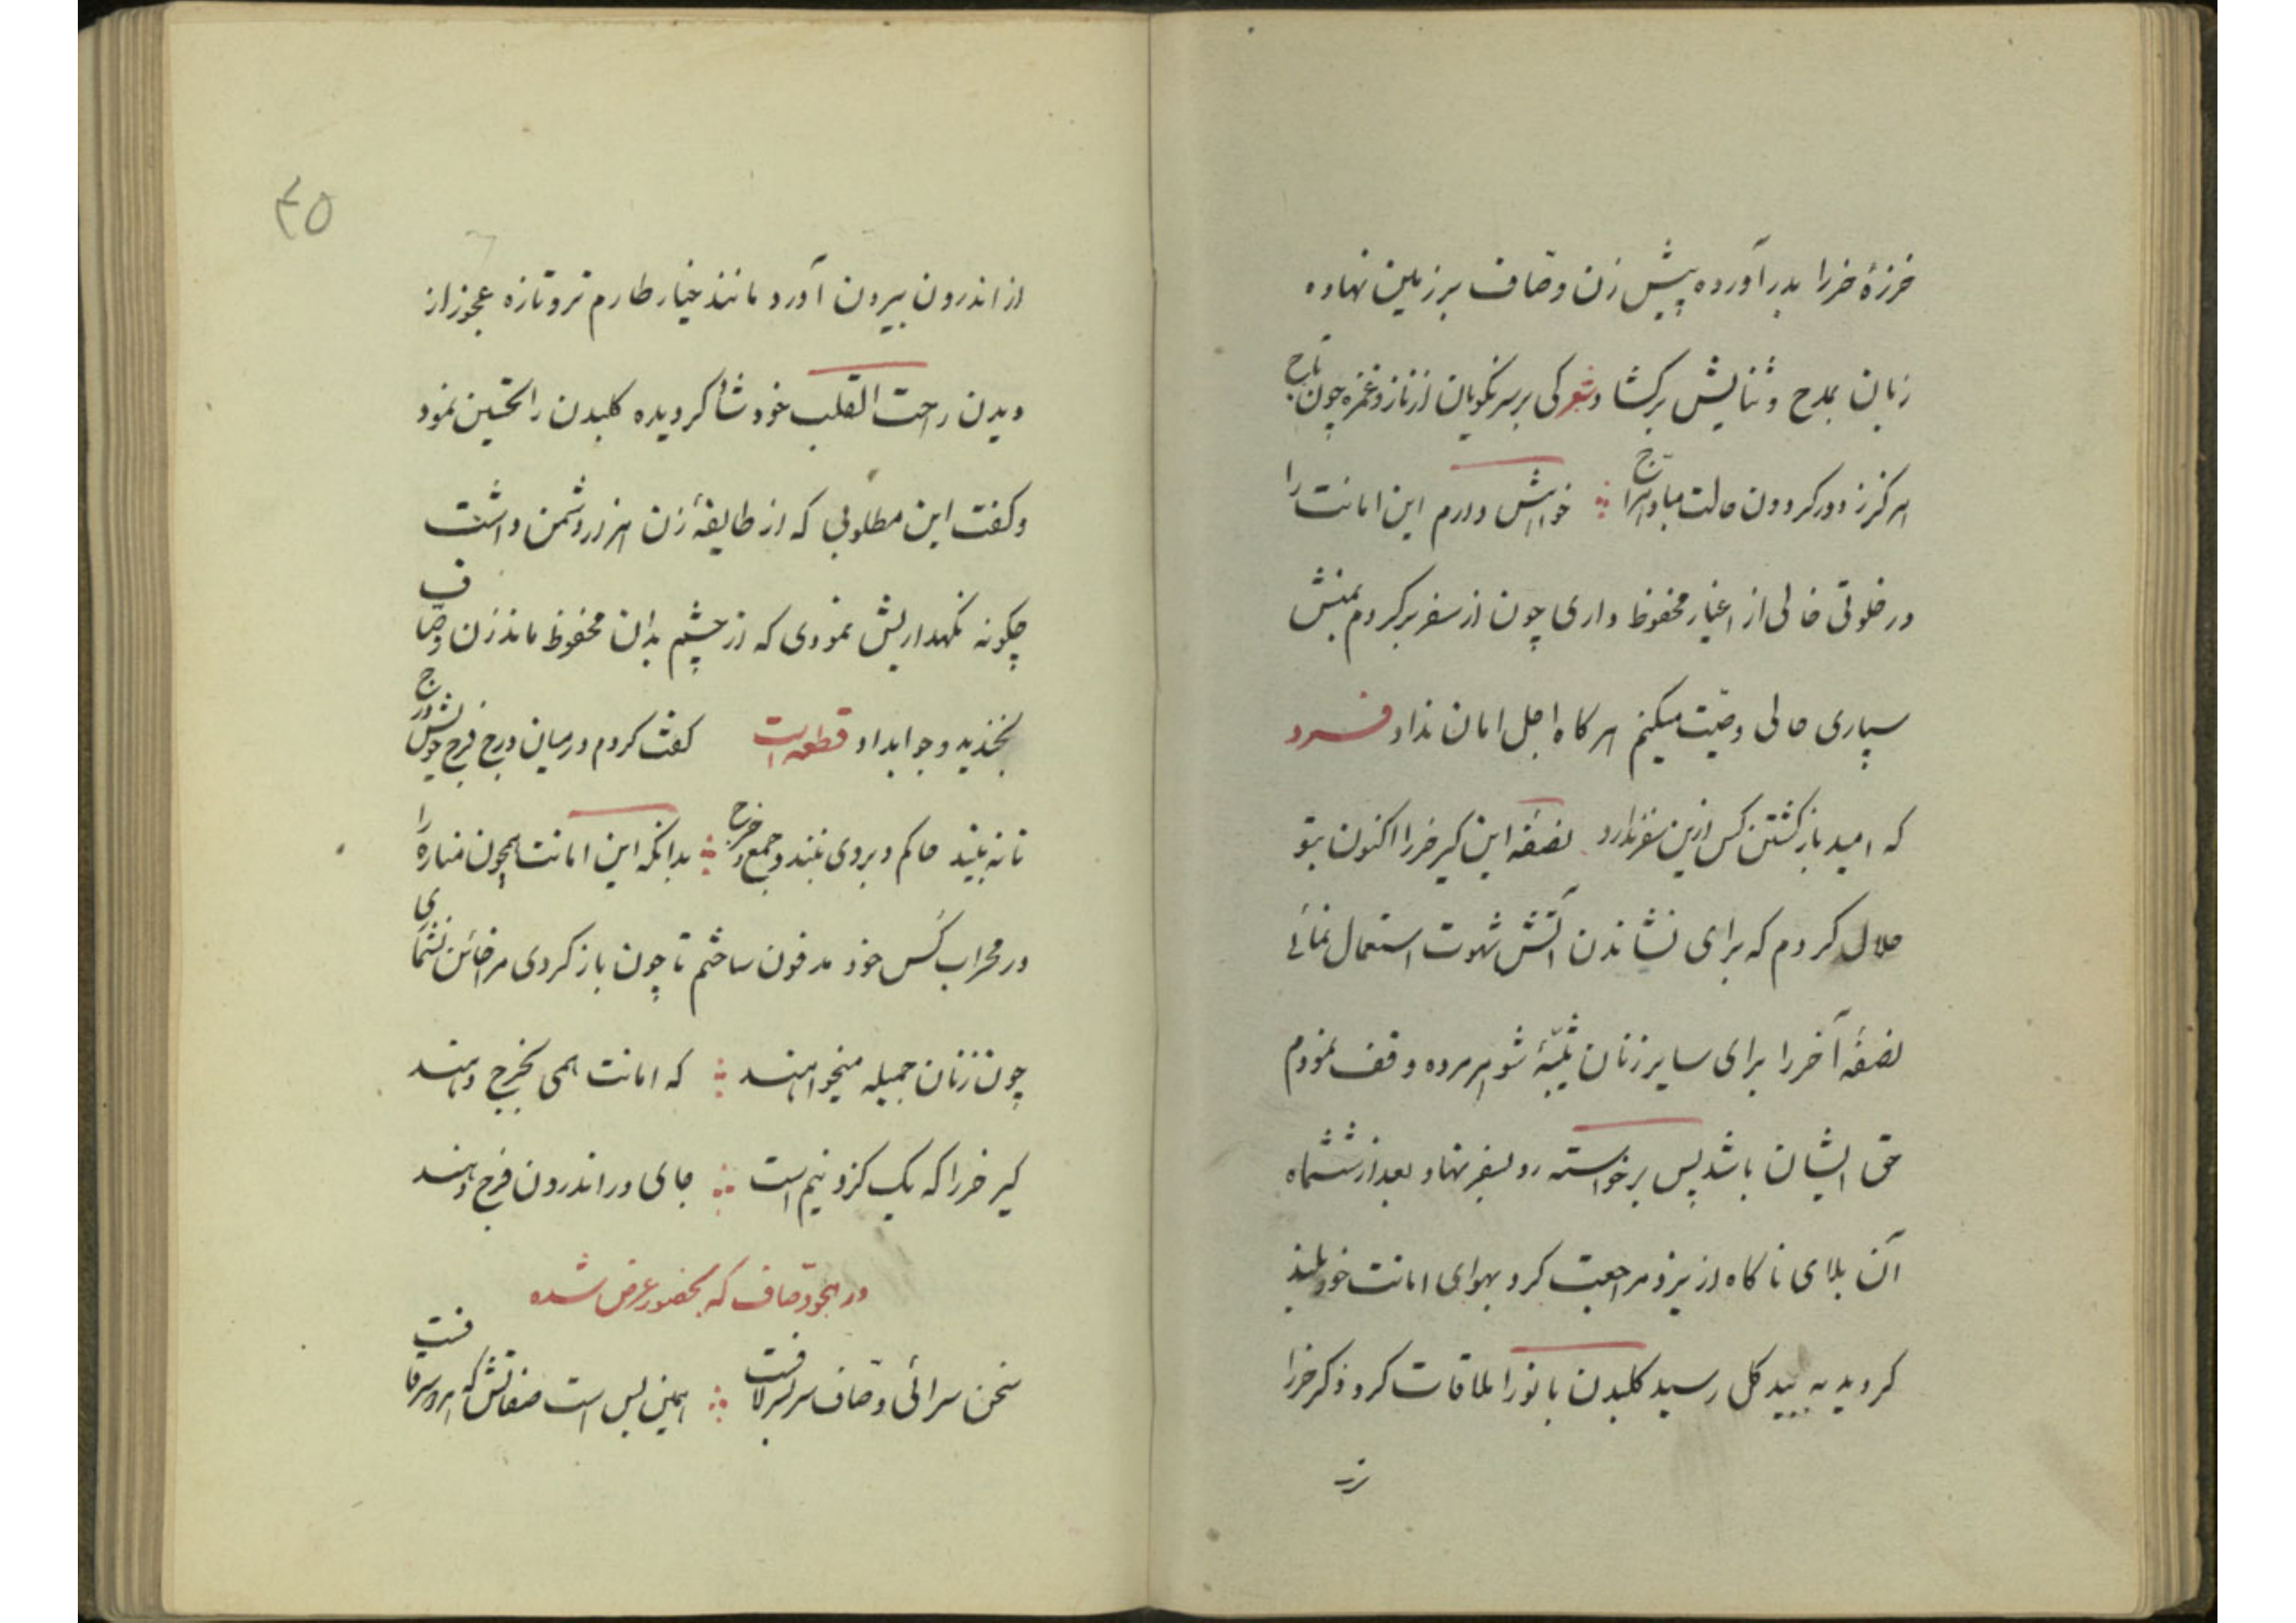 خرزهٔ خر را بدر آورده پیش زن وصاف بر زمین نهاده
زبان بمدح و ثنایش برکشاد شعر کی بر سر نکویان از ناز و غمزه چون تاج
هرکز ز دور کردون حالت مباد هراج خواهش دارم این امانت را
در خلوتی خالی از اغیار محفوظ داری چون از سفر برکردم بمنش
سپاری حالی وصیت میکنم هرکاه اجل امان نداد فرد
که امید باز کشتن کس ازین سفر ندارد نصفهٔ این کیر خر را اکنون بتو
حلال کردم که برای نشاندن آتش شهوت استعمال نمائی
نصفهٔ آخر را برای سایر زنان ثیّبهٔ شوهر مرده وقف نمودم
حق ایشان باشد پس برخواسته رو بسفر نهاد بعد از ششماه
آن بلای ناکاه از یزد مراجعت کرد بهوای امانت خود بلند
کردیده به بیدکل رسید کلبدن بانو را ملاقات کرد ذکر خر را
۴۵
از اندرون بیرون آورد مانند خیار طارم تر و تازه عجوز از
دیدن راحت القلب خود شاد کردیده کلبدن را تحسین نمود
و کفت این مطلوبی که از طایفهٔ زن هزار دشمن داشت
چکونه نکهداریش نمودی که از چشم بدان محفوظ ماند زن وصاف
بخندید و جوابداد قطعه است کفت کردم در میان درج فرج خویش درج
تا نه بیند حاکم و بروی نبندد جمع و خرج بدانکه این امانت همچون مناره را
در محراب کُس خود مدفون ساختم تا چون باز کردی مرا خائن نشماری
چون زنان جمیله میخواهند که امانت همی بخرج دهند
کیر خر را که یک کز و نیم است جای در اندرون فرج دهند
در هجو وصّاف که بحضور عرض شده
سخن سرائی وصّاف سر بسر لافست همین بس است صفاتش که اهر و سرقافست